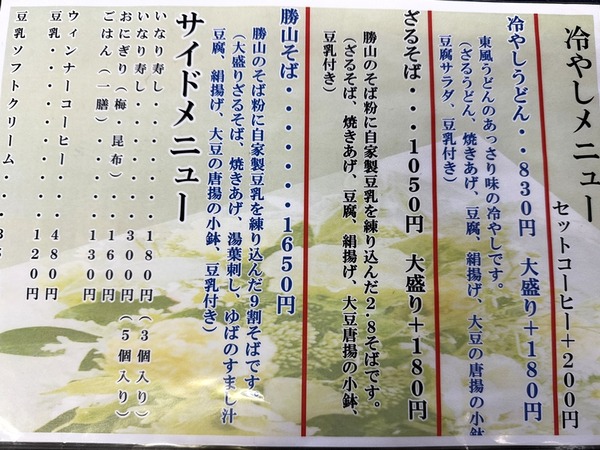 冷やしメニュー
セットコーヒー＋200円
冷やしうどん・・830円　大盛り＋180円
東風うどんのあっさり味の冷やしです。
（ざるうどん、焼きあげ、豆腐、絹揚げ、大豆の唐揚の小鉢
豆腐サラダ、豆乳付き）
ざるそば・・・・1050円　大盛り＋180円
勝山のそば粉に自家製豆乳を練り込んだ2.8そばです。
（ざるそば、焼きあげ、豆腐、絹揚げ、大豆唐揚の小鉢、
豆乳付き）
勝山そば・・・・・・・1650円
勝山のそば粉に自家製豆乳を練り込んだ9割そばです
（大盛りざるそば、焼きあげ、湯葉刺し、ゆばのすまし汁
豆腐、絹揚げ、大豆の唐揚の小鉢、豆乳付き）
サイドメニュー
いなり寿し・・・・・180円（3個入り）
いなり寿し・・・・・300円（5個入り）
おにぎり（梅　昆布）・・160円
ごはん（一膳）・・・・130円
ウィンナーコーヒー・・・480円
豆乳・・・・・・・・120円
豆乳ソフトクリーム・・